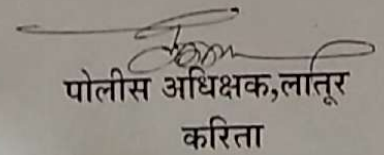 पोलीस अधिक्षक,लातूर
करिता